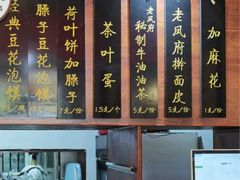 经典豆花泡馍
臊子豆花泡馍
荷叶饼加臊子
7元/份
茶叶蛋
1.5元/个
老凤府
秘制牛油油茶
5元/份
老凤府擀面皮
5元/份
加麻花
1元/份